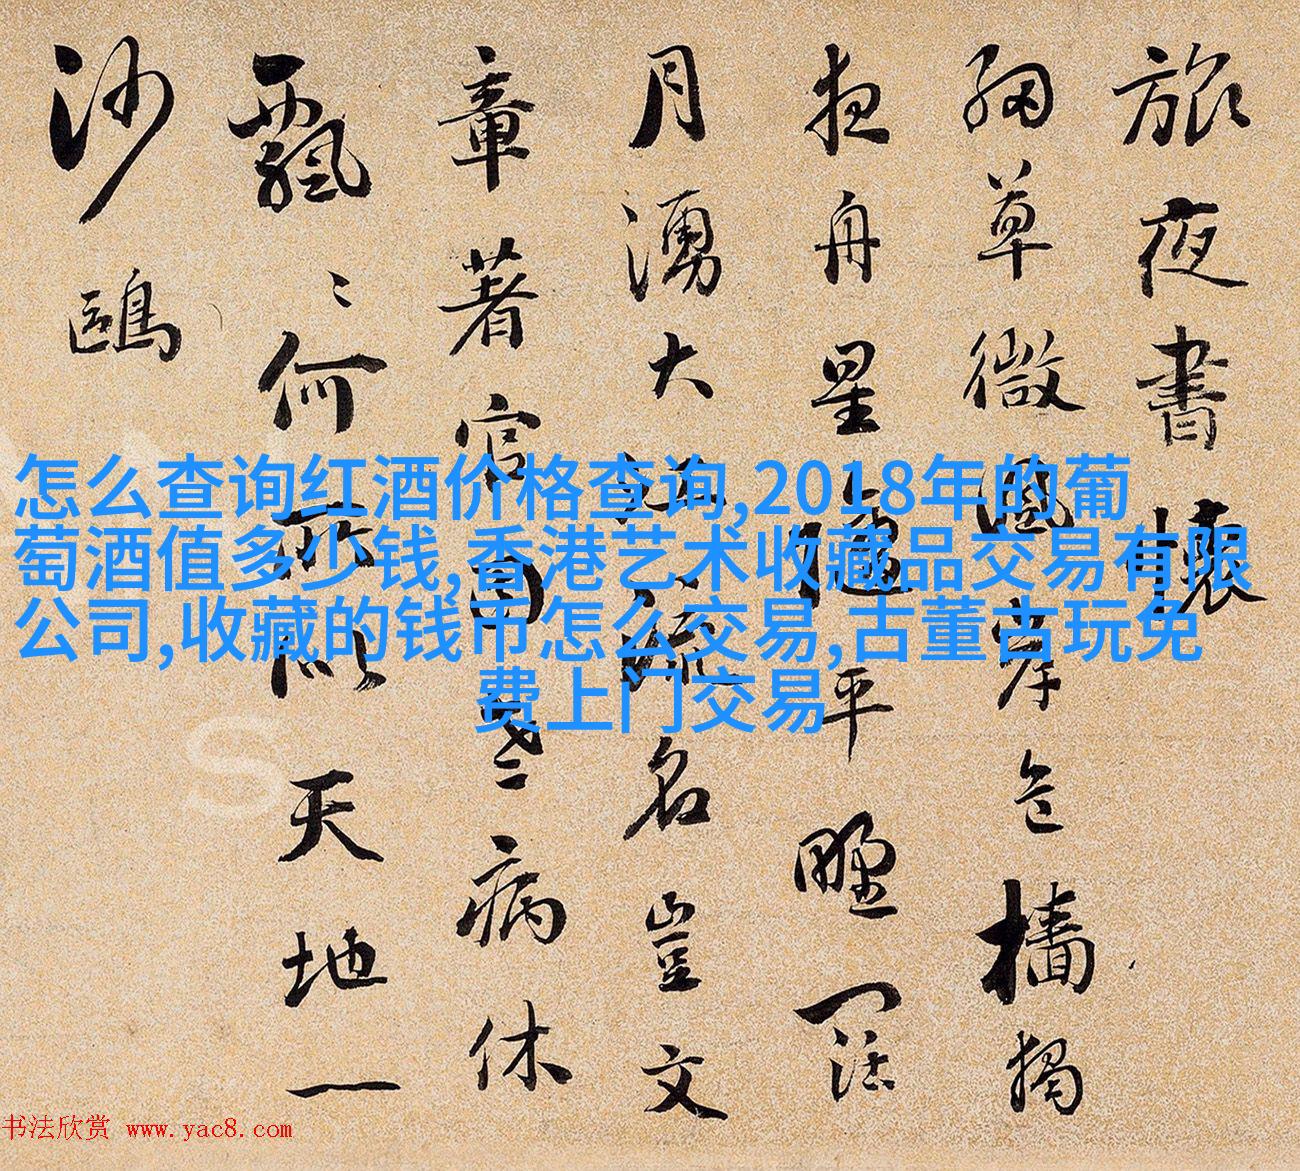 旅夜書懷
細草微風岸危檣獨
夜舟星隨平野闊
月湧大江流名豈文
章著官因老病休
飄〻何所似天地一
沙鷗
怎么查询红酒价格查询,2018年的葡
萄酒值多少钱,香港艺术收藏品交易有限
公司,收藏的钱币怎么交易,古董古玩免
费上门交易
书法欣赏 www.yac8.com